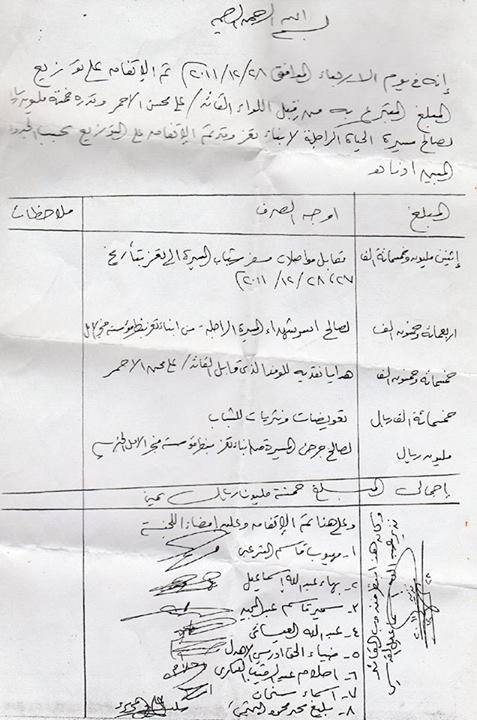 بسم الله الرحمن الرحيم
إنه في يوم الاربعاء الموافق ٢٨/١٢/٢٠١١ تم الإتفاق على توزيع
المبلغ المتبرع به من قبل اللواء القائد/ علي محسن الاحمر وقدره خمسة مليون ريال
لصالح مسيرة الحياة الراجلة لابناء تعز وقد تم الإتفاق على التوزيع بحسب الجدول
المبين ادناه
المبلغ اوجه الصرف ملاحظات
إثنين مليون وخمسمائة الف مقابل مواصلات سفر شباب المسيرة الى تعز بتأريخ
٢٧، ٢٨/١٢/٢٠١١
اربعمائة وخمسون الف لصالح اسر شهداء المسيرة الراجلة من ابناء تعز بنظر مؤسسة فجر الامل
خمسمائة وخمسون الف هدايا نقدية للوفد الذي قابل القائد/ علي محسن الاحمر
خمسمائة الف ريال تعويضات ونثريات للشباب
مليون ريال لصالح جرحى المسيرة من ابناء تعز بنظر مؤسسة فجر الامل الخيرية
إجمالي المبلغ خمسة مليون ريال يمني
وعلى هذا تم الإتفاق وعليه إمضاء اللجنة
١- مهيوب قاسم الشرعبي
٢- بهاء عبدالله إسماعيل
٣- سمير قاسم عبدالمجيد
٤- عبد الله العساني
٥- ضياء الحق ادريس الاهدل
٦- احلام عبد الرقيب العكوري
٧- اسماء سنان
٨- بليغ محمد محمود التميمي
وكان هذا بنظر مندوب القائد